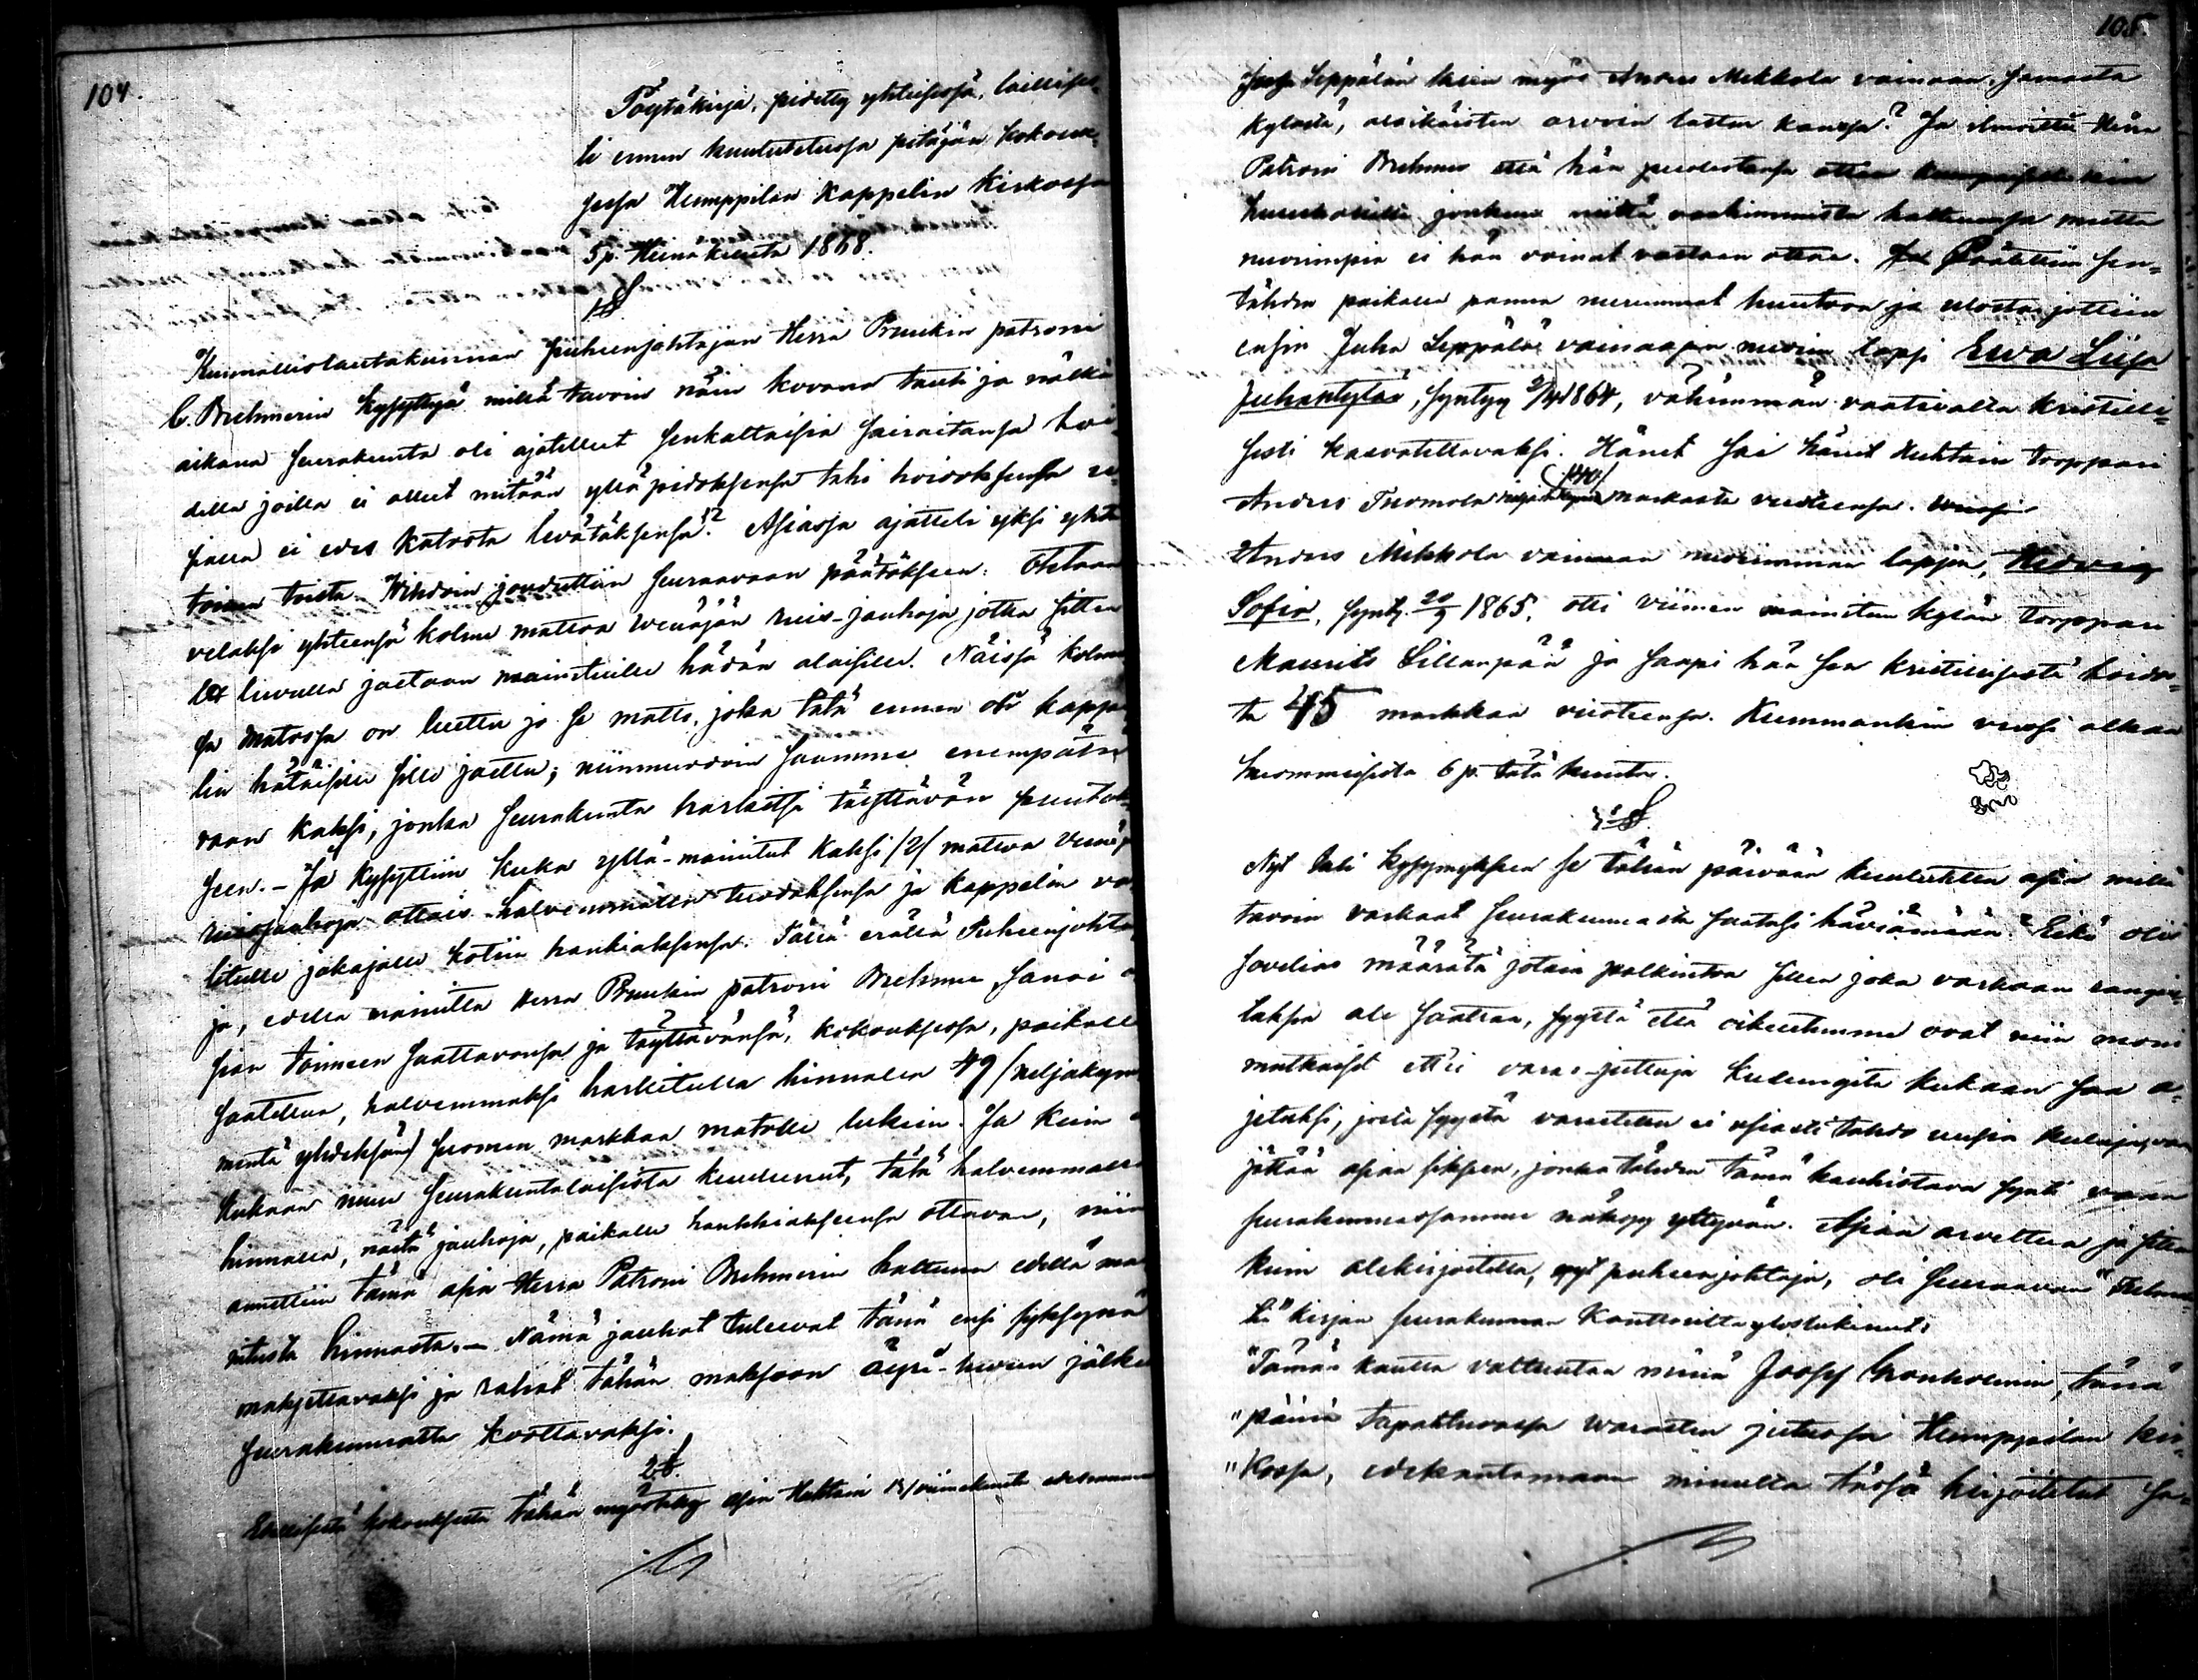 104.
Pöytäkirja, pidetty yhteisessä, laillises-
ti ennen kuulutetussa pitäjän kokouk-
sessa Humppilan Kappelin Kirkossa
5 p. Heinäkuuta 1868.
1 §
Kunnallislautakunnan puheenjohtajan Herra Bruukin patroni
C. Brehmerin kysyttyä millä tavoin näin kovana tauti ja nälkä
aikana seurakunta oli ajatellut senkaltaisia sairaitansa hoi-
della joilla ei ollut mitään ylläpidoksensa tahi hoidoksensa
ei edes katosta levätäksensä? Asiassa ajatteli yksi yhtä
toinen toista. Wihdoin jouduttiin seuraavaan päätökseen: Otetaan
velaksi yhteensä kolme mattoa Wenäjän ruis-jauhoja jotka sitten
luvulla jaetaan mainituille hädän alaisille. Näissä kolme
sa matossa on luettu jo se matto, joka tätä ennen on kappe
lin hätäisille jaettu; niinmuodoin saamme enempätä
vaan kaksi, jonka seurakunta harkitsi täyttävän puutok-
seen. – Ja kysyttiin kuka yllä-mainitut kaksi /2/ mattoa Venäj
ruisjauhoja ottais halvemmalla tuodaksensa ja kappelin va
litulle jakajalle kotiin hankiaksensa. Tällä erällä Puheenjohta
ja, edellä mainittu Herra Bruukin patroni Brehmer, sanoi
sian toimeen saattavansa ja täyttävänsä, kokouksessa, paikalle
saatettua, halvemmaksi harkitulla hinnalla 49 /neljäkym
mentä yhdeksän/ Suomen markkaa matolle lukein. Ja kuin
kukaan muu seurakuntalaisista kuulunut, tätä halvemmalla
hinnalla, näitä jauhoja, paikalle hankkiaksensa ottavan, niin
annettiin tämä asia Herra Patroni Brehmerin haltuun edellä mai
nitusta hinnasta. – Nämä jauhot tulevat tänä ensi syksynä
maksettavaksi ja rahat tähän maksoon äyri-luvun jälkeen
seurakunnalta koottavaksi.
2 §.
Edellisestä kokouksesta tähän myöstetty asia Huhtain
105.
Juha Seppälän kuin myös Anders Mikkola vainaan samasta
kylästä, alaikäisten orvoin lasten kanssa? Ja ilmoitti Herra
Patroni Brehmer että hän puolestansa ottaa
huostoksille jonkun niitä vanhimmista haltuunsa mutta
nuorimpia ei hän voinut vastaan ottaa. Päätettiin sen-
tähden paikalla panna nuorimmat huutoon ja ulostarjottiin
ensin Juha Seppälä vainaajan nuorin lapsi Ewa Liisa
Juhantytär, syntyny 2/4 1864, vähimmän vaativalle kristilli-
sesti kasvatettavaksi. Hänet sai hänet Huhtain torppari
Anders Tuomola /40/ markasta vuoteensa.
Anders Mikkola vainaan nuorimman lapsen, Hedwig
Sofia, synty. 20/9 1865, otti viimen mainitun kylän torppari
Maurits Sillanpää ja saapi hän sen kristillisestä hoidos-
ta 45 markkaa vuoteensa. Kummankin vuosi alkaa
huommeisesta 6 p. tätä kuuta.
3 §.
Nyt tuli kysymykseen se tähän päivään kuulutettu asia millä
tavoin varkaat seurakunnasta saatasi häviämään? Eikö olis
soveliasta määrätä jotain palkintoa sille joka varkaan rangais
tuksen ale saattaa, syystä että oikeutemme ovat niin moni
mutkaiset ett'ei varas-juttuja kulungita kukaan saa a-
jetuksi, josta syystä varastettu ei usiasti tahdo uusia kuluja, vaan
jättää asian siksen, jonka tähden tämä kauhistava synti vaan
seurakunnassamme näkyy yltyvän. Asian arveltua ja sitten
kuin alekirjoitettu, nyt puheenjohtaja, oli seuraavan "Fulmak
ti" kirjan seurakunnan kanttorilta yloslukenut:
"Tämän kautta valtuutan minä Josef Grönholmin, tänä
"päinä tapahtuvassa warasten jutussa Humppilan kir-
"kossa, edeskantamaan minulta tässä kirjoitetut sa-